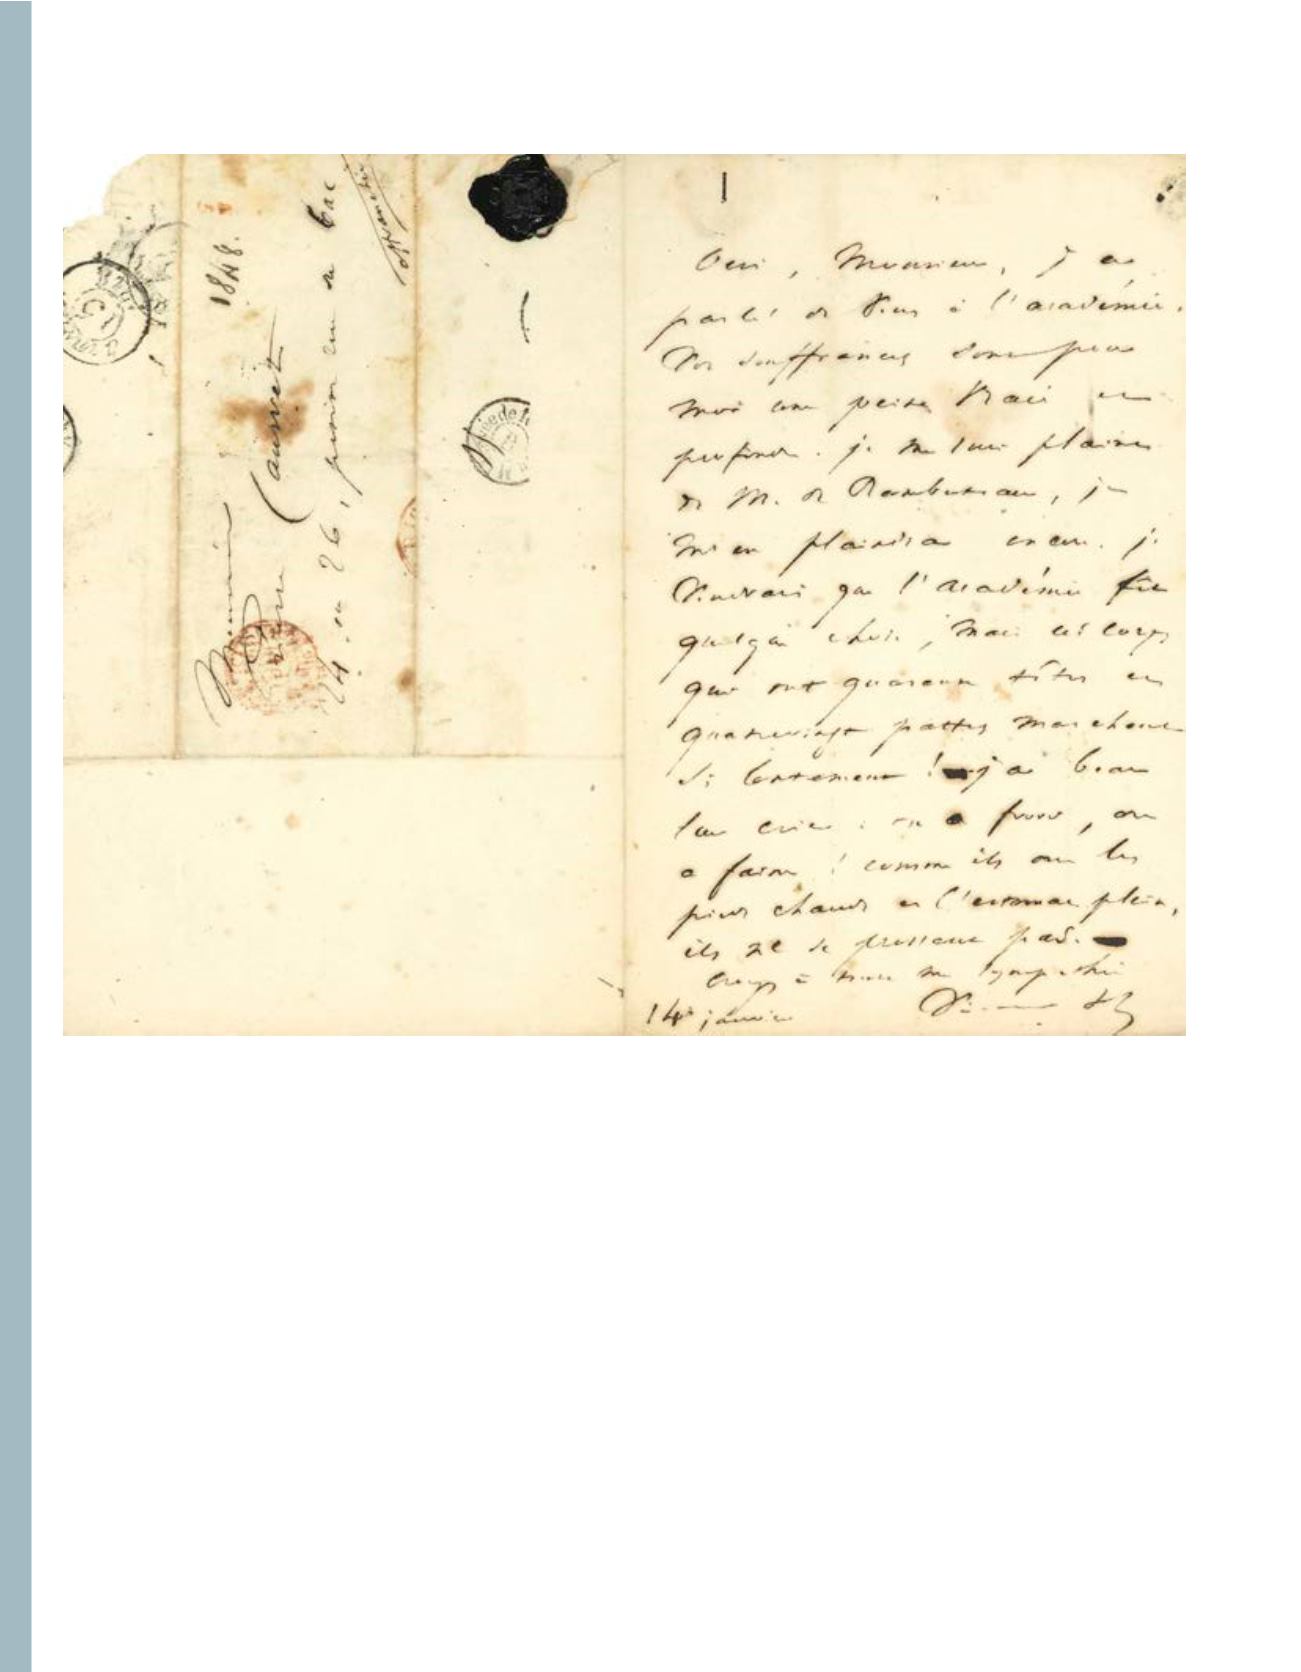 1848.
Monsieur
Pierre Cauvet
24 ou 26, prison en
Oui, Monsieur, j'ai
parlé de vous à l'académie.
Vos souffrances sont pour
moi une peine vraie et
profonde. je me suis plaint
de M. de Rambuteau, je
m'en plaindrai encore. je
voudrais que l'académie fît
quelque chose, mais ces corps
qui ont quarante têtes et
quatrevingt pattes marchent
si lentement ! j'ai beau
leur crier : on a froid, on
a faim ! comme ils ont les
pieds chauds et l'estomac plein,
ils ne se pressent pas.
Croyez à toute ma sympathie
14 janvier Victor H